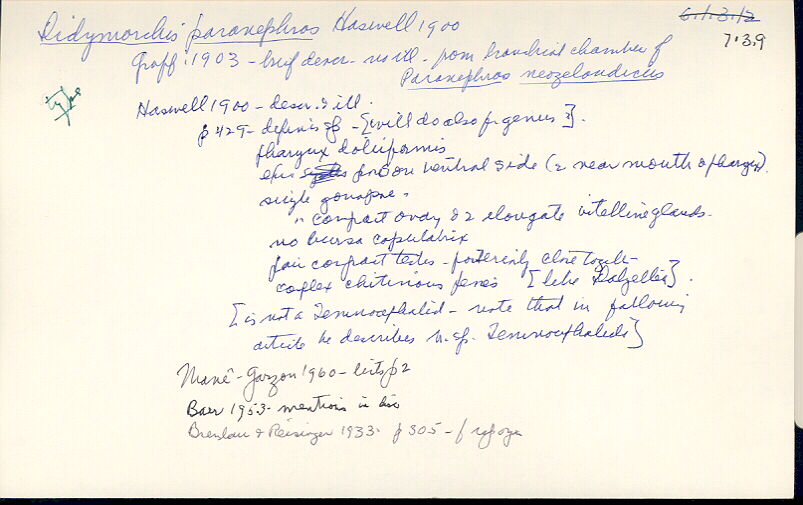 Didymorchis paranephros Haswell 1900
6.1.3.1.2
7.3.9
Graff 1903 - brief descr - no ill - from branchial chamber of
Paranephros neozelandicus
type
Haswell 1900 - descr. & ill.
p 429 - defin of - [will do also for genus ?].
Pharynx doliiformis
exc on ventral side (2 near mouth & pharynx).
single gonopore.
" compact ovary & 2 elongate vitelline glands.
no bursa copulatrix
pair compact testes - posteriorly close together -
complex chitinous penis [like Dalyellia].
[is not a Temnocephalid - note that in following
article he describes n.sp. Temnocephalids]
Mañé-Garzon 1960 - lists p 2
Baer 1953 - mentions in
Bresslau & Reisinger 1933 - p 305 - f